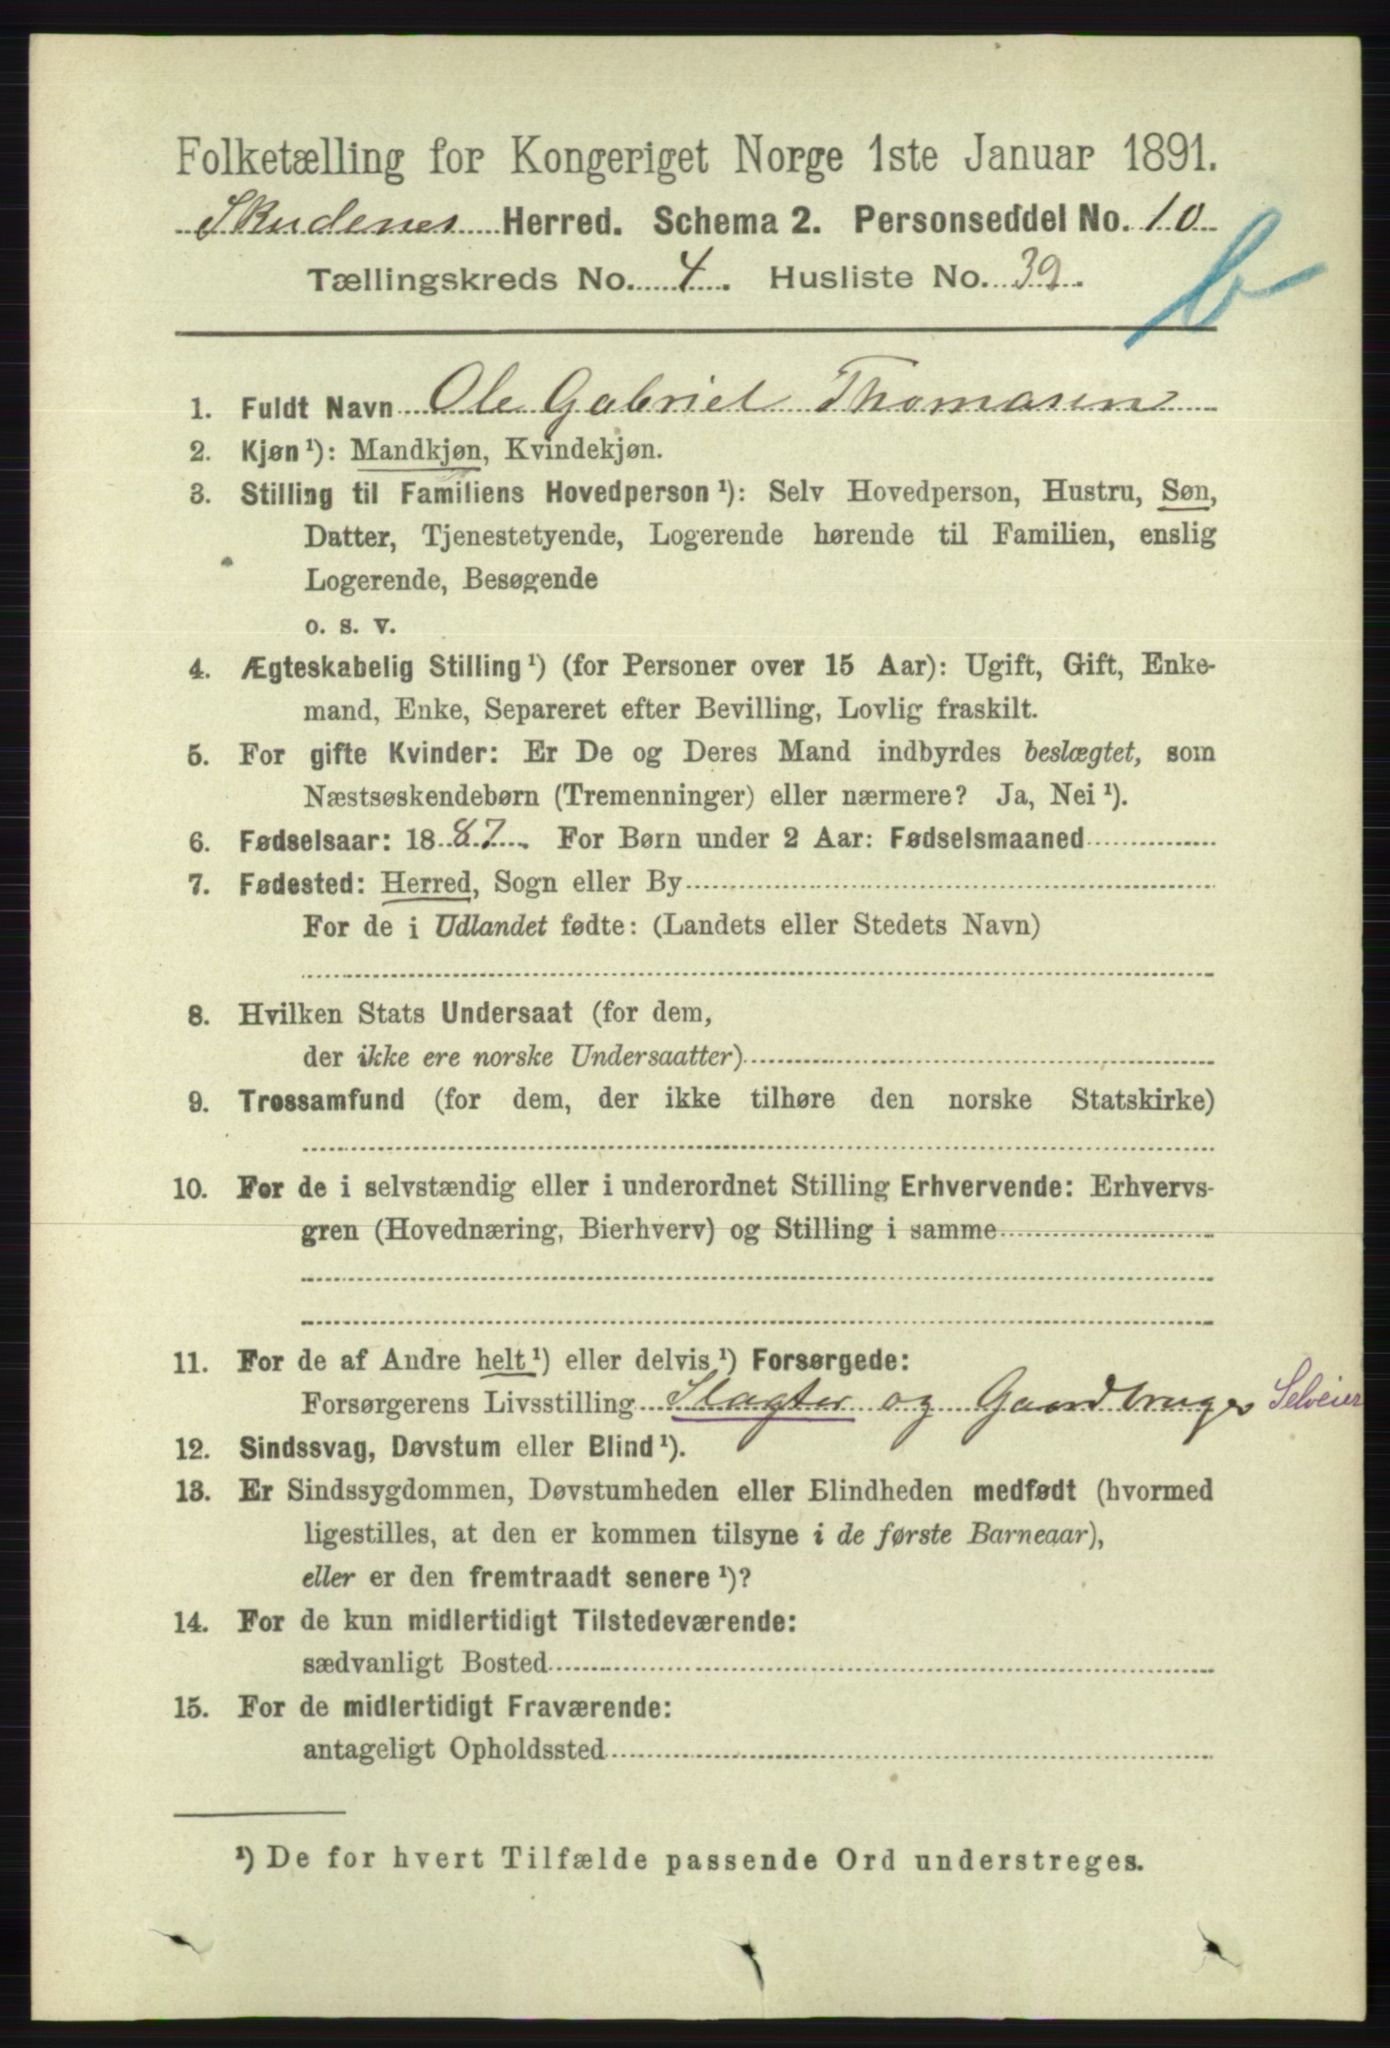 Folketælling for Kongeriget Norge 1ste Januar 1891.
Skudenes Herred. Schema 2. Personseddel No. 10
Tællingskreds No. 4. Husliste No. 39.
b
1. Fuldt Navn Ole Gabriel Thomasen
2. Kjøn ¹): Mandkjøn, Kvindekjøn.
3. Stilling til Familiens Hovedperson ¹): Selv Hovedperson, Hustru, Søn,
Datter, Tjenestetyende, Logerende hørende til Familien, enslig
Logerende, Besøgende
o. s. v.
4. Ægteskabelig Stilling ¹) (for Personer over 15 Aar): Ugift, Gift, Enke-
mand, Enke, Separeret efter Bevilling, Lovlig fraskilt.
5. For gifte Kvinder: Er De og Deres Mand indbyrdes beslægtet, som
Næstsøskendebørn (Tremenninger) eller nærmere? Ja, Nei ¹).
6. Fødselsaar: 1887. For Børn under 2 Aar: Fødselsmaaned
7. Fødested: Herred, Sogn eller By
For de i Udlandet fødte: (Landets eller Stedets Navn)
8. Hvilken Stats Undersaat (for dem,
der ikke ere norske Undersaatter)
9. Trossamfund (for dem, der ikke tilhøre den norske Statskirke)
10. For de i selvstændig eller i underordnet Stilling Erhvervende: Erhvervs-
gren (Hovednæring, Bierhverv) og Stilling i samme
11. For de af Andre helt ¹) eller delvis ¹) Forsørgede:
Forsørgerens Livsstilling Slagter og Gaardbruger Selveier
12. Sindssvag, Døvstum eller Blind ¹).
13. Er Sindssygdommen, Døvstumheden eller Blindheden medfødt (hvormed
ligestilles, at den er kommen tilsyne i de første Barneaar),
eller er den fremtraadt senere ¹)?
14. For de kun midlertidigt Tilstedeværende:
sædvanligt Bosted
15. For de midlertidigt Fraværende:
antageligt Opholdssted
¹) De for hvert Tilfælde passende Ord understreges.